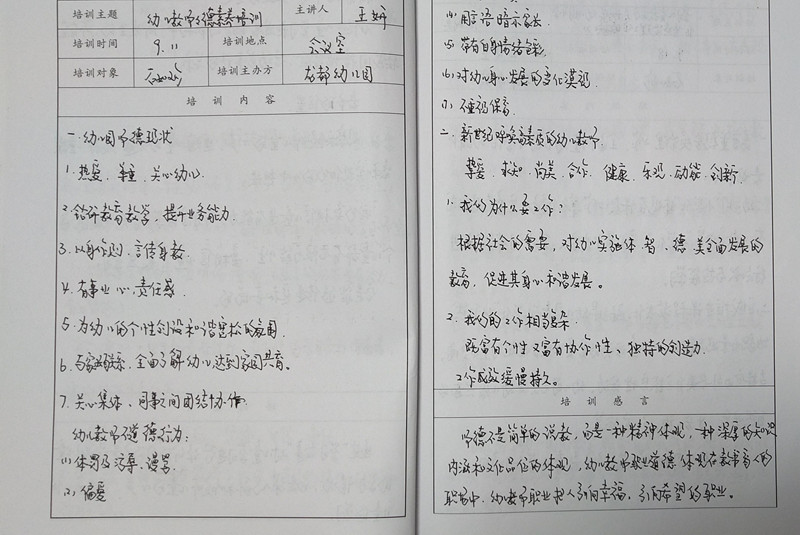 培训主题 幼儿教师师德素养培训 主讲人 王妍
培训时间 9.11 培训地点 会议室
培训对象 培训主办方 幼儿园
培训内容
一、幼儿园师德现状
1.热爱、尊重、关心幼儿
2.钻研教育教学，提升业务能力
3.以身作则、言传身教
4.有事业心、责任感
5.为幼儿的个性创设和谐宽松的氛围
6.与家长联系、全面了解幼儿达到家园共育。
7.关心集体、同事之间团结协作
幼儿教师不道德行为：
(1)体罚及污辱、谩骂
(2)偏爱
(4)用言语暗示家长
(5)带有自身情绪色彩
(6)对幼儿身心发展的变化漠视
(7)不重视保育
二、新世纪呼唤高素质的幼儿教师
挚爱、求知、尚美、合作、健康、乐观、动能、创新
1.我们为什么要工作：
根据社会的需要，对幼儿实施体、智、德、美全面发展的
教育，促进其身心和谐发展。
2.我们的工作相当复杂
既富有个性又富有协作性、独特的创造力
工作成效缓慢持久。
培训感言
师德不是简单的说教，而是一种精神体现，一种深厚的知识
内涵和文化品位的体现，幼儿教师职业道德体现在教书育人的
职业中，幼儿教师职业把人引向幸福，引向希望的职业。